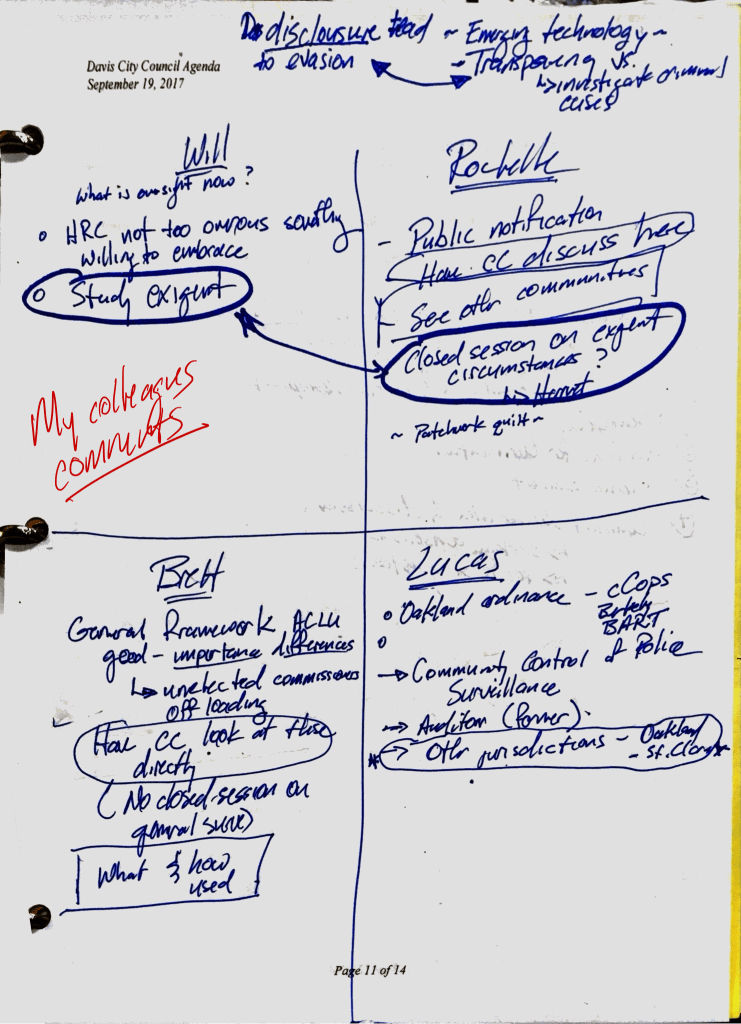 disclousure lead
to evasion
~ Emerging technology ~
- Transparency vs.
↳ investigate criminal
cases
Davis City Council Agenda
September 19, 2017
Will
What is oversight now?
o HRC not too onerous
willing to embrace
o Study exigent
My colleagues
comments
Rochelle
- Public notification
Have CC discuss here
- See other communities
Closed session on exigent
circumstances?
↳
~ Patchwork quilt ~
Brett
General Rramework ACLU
good - importance differences
↳ unelected commissioners
off loading
Have CC look at these
directly
(No closed session on
general surv)
What & how
used
Lucas
o Oakland ordinance - cCops
BART
o
→ Community Control of Police
Surveillance
→ Auditor (former).
* → Other jurisdictions - Oakland
- St. Clara
Page 11 of 14